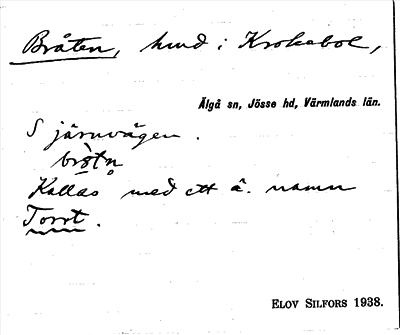 Bråten, hmd i Krokebol,
Älgå sn, Jösse hd, Värmlands län.
S järnvägen.
Kallas med ett ä. namn
Torrt.
ELOV SILFORS 1938.